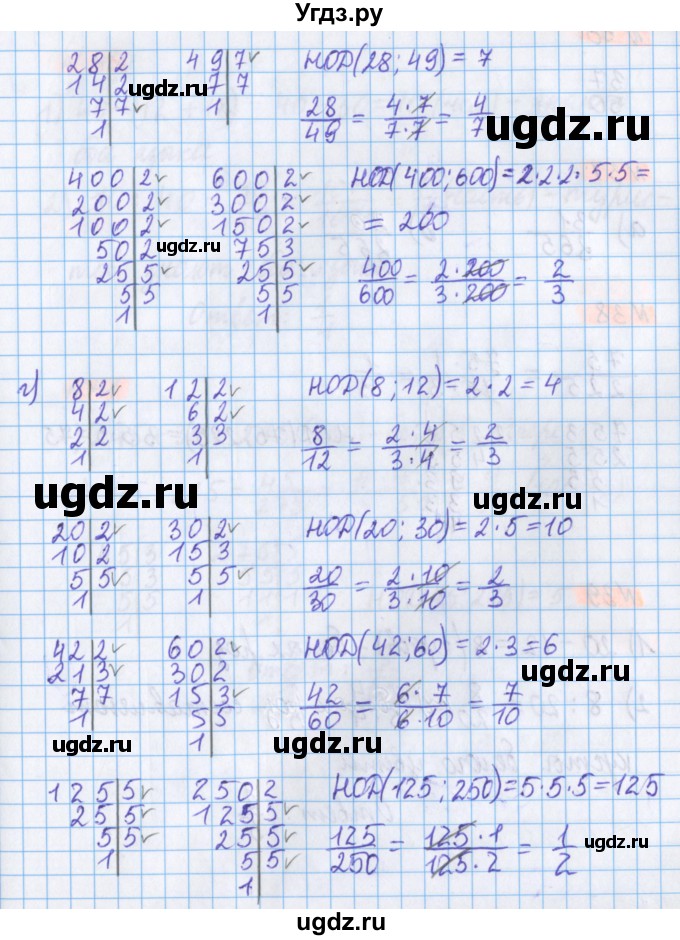 Угдз.ру
28|2 49|7✓ НОД(28; 49) = 7
14|2 7|7
7|7✓ 1|
1|
28/49 = 4·7/7·7 = 4/7
ugdz.ru
ugdz.ru
400|2✓ 600|2✓ НОД(400; 600) = 2·2·2·5·5 =
200|2✓ 300|2✓ = 200
100|2✓ 150|2✓
50|2 75|3
25|5✓ 25|5✓
5|5 5|5
1| 1|
400/600 = 2·200/3·200 = 2/3
ugdz.ru
ugdz.ru
ugdz.ru
г) 8|2✓ 12|2✓ НОД(8; 12) = 2·2 = 4
4|2✓ 6|2✓
2|2 3|3
1| 1|
8/12 = 2·4/3·4 = 2/3
ugdz.ru
ugdz.ru
20|2✓ 30|2✓ НОД(20; 30) = 2·5 = 10
10|2 15|3
5|5✓ 5|5✓
1| 1|
20/30 = 2·10/3·10 = 2/3
ugdz.ru
ugdz.ru
42|2✓ 60|2✓ НОД(42; 60) = 2·3 = 6
21|3✓ 30|2
7|7 15|3✓
1| 5|5
1|
42/60 = 6·7/6·10 = 7/10
ugdz.ru
ugdz.ru
ugdz.ru
125|5✓ 250|2 НОД(125; 250) = 5·5·5 = 125
25|5✓ 125|5✓
5|5✓ 25|5✓
1| 5|5✓
1|
125/250 = 125·1/125·2 = 1/2
ugdz.ru
ugdz.ru
ugdz.ru